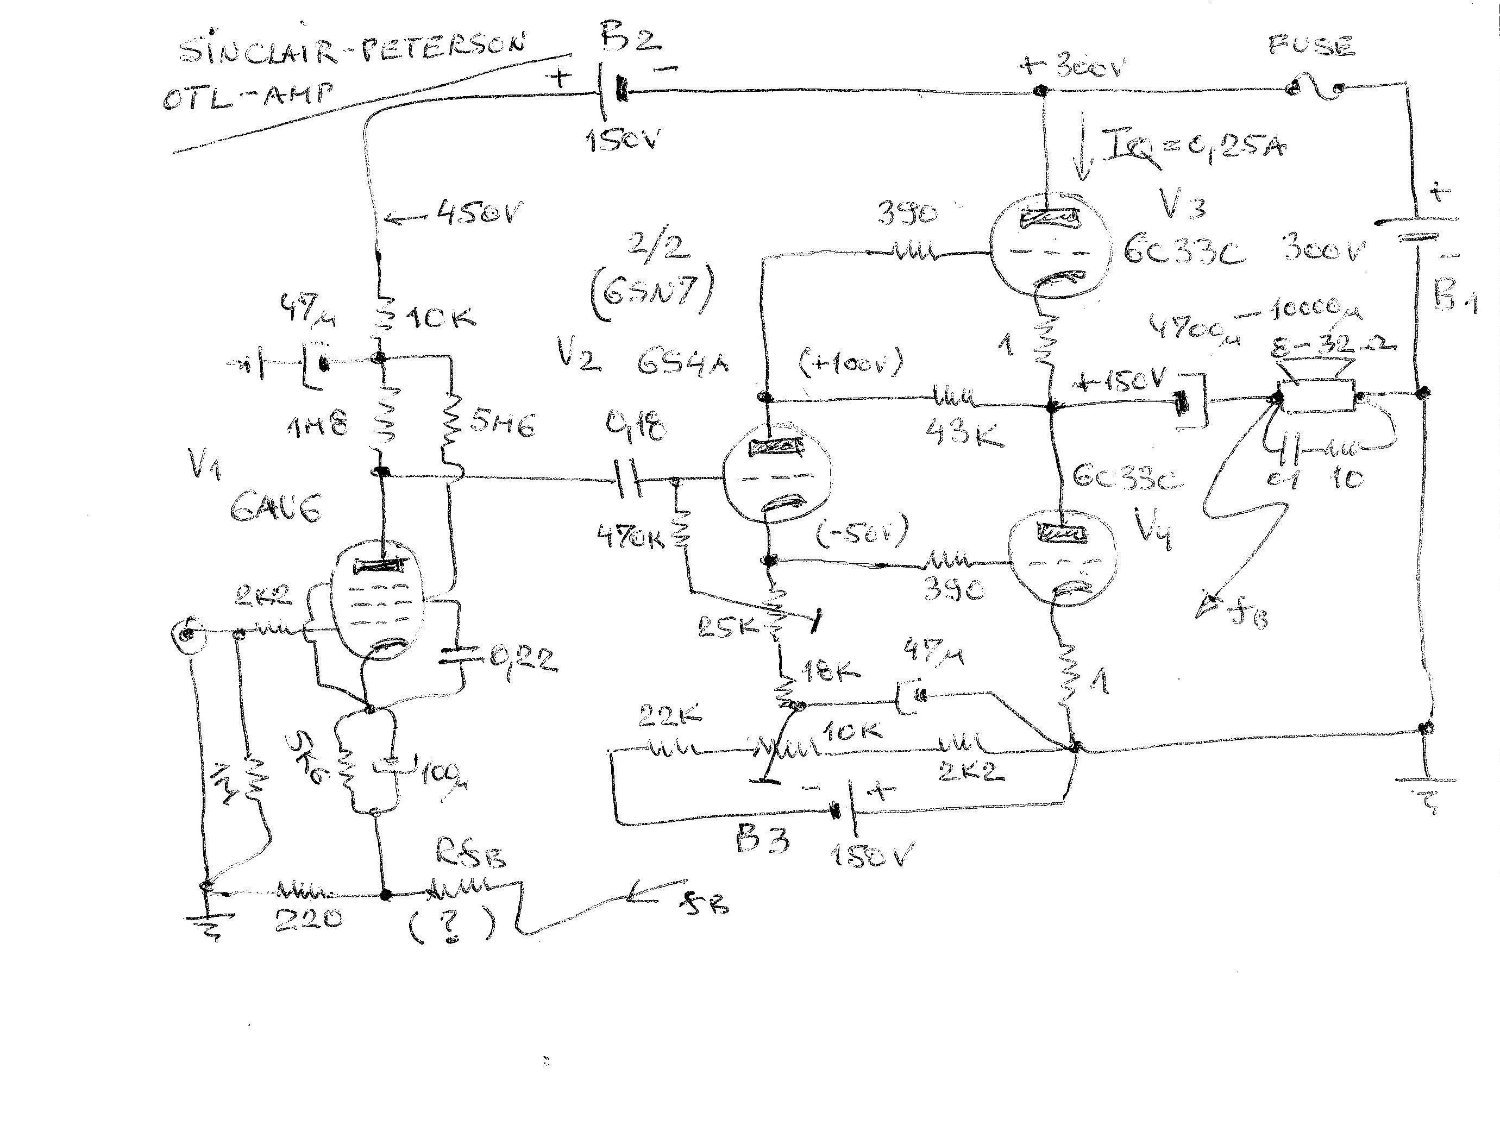 SINCLAIR-PETERSON
OTL-AMP
B2
+ -
150V
+300V
FUSE
IQ=0,25A
←450V
390
V3
6C33C
300V
+
-
B1
2/2
(6SN7)
47µ
10K
V2 6S4A
(+100V)
1
4700µ - 10000µ
8-32Ω
+150V
1M8
5M6
0,18
43K
V1
6AU6
470K
(-50V)
6C33C
V4
01 10
2K2
25K
390
fB
0,22
18K
47µ
1
22K
10K
2K2
5K6
100µ
- +
B3
150V
RfB
220
(?)
fB